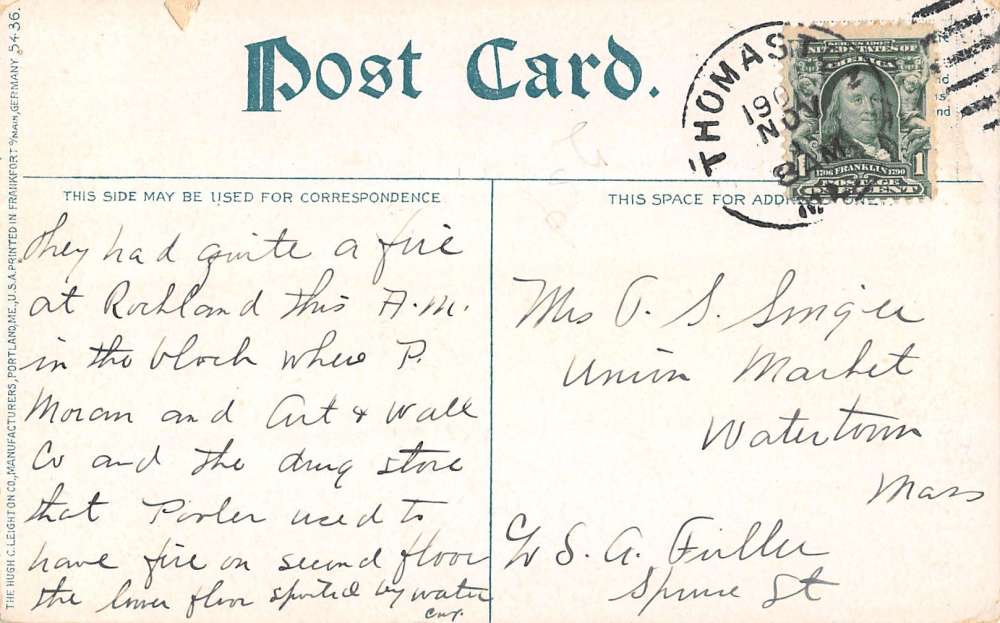 Post Card.
THOMAST
190
NOV
SERIES 1902
UNITED STATES OF
AMERICA
1 1706 FRANKLIN 1790 1
POSTAGE
ONE CENT
THIS SIDE MAY BE USED FOR CORRESPONDENCE
They had quite a fire
at Rockland this A.M.
in the block where P.
Moran and Art & Wall
Co and the drug store
that Pooler used to
have fire on second floor
the lower floor spoiled by water
THIS SPACE FOR ADDRESS ONLY
Mrs O. S. Singer
Union Market
Watertown
Mass
c/o S. A. Fuller
Spruce St
THE HUGH C. LEIGHTON CO., MANUFACTURERS, PORTLAND, ME., U.S.A. PRINTED IN FRANKFORT o/MAIN, GERMANY 5436.